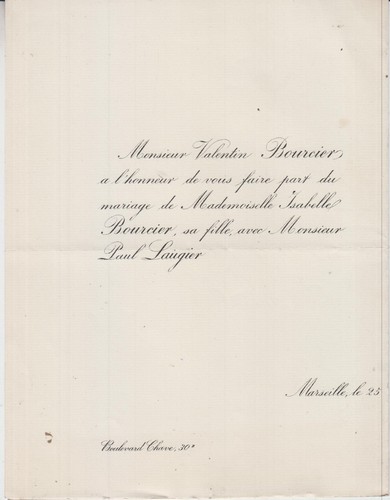 Monsieur Valentin Bourcier
a l'honneur de vous faire part du
mariage de Mademoiselle Isabelle
Bourcier, sa fille, avec Monsieur
Paul Laugier
Marseille, le 25
Boulevard Chave, 30ª